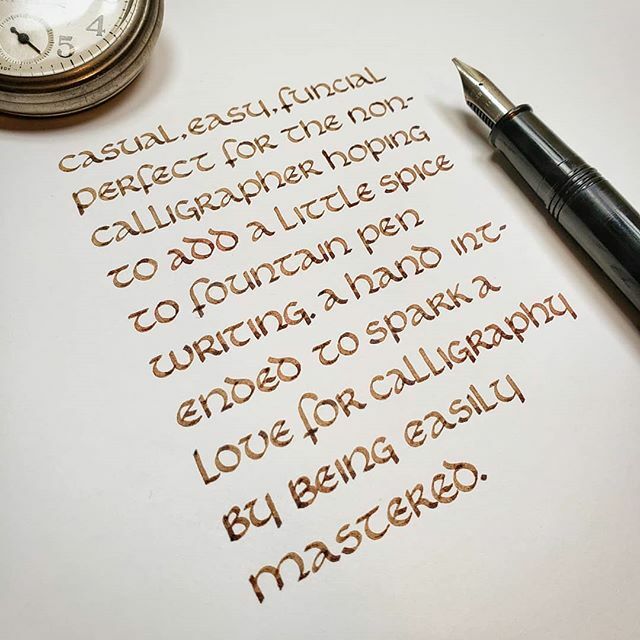 5 4
casual, easy, funcial
perfect for the non-
calligrapher hoping
to add a little spice
to fountain pen
writing. a hand int-
ended to spark a
love for calligraphy
by being easily
mastered.